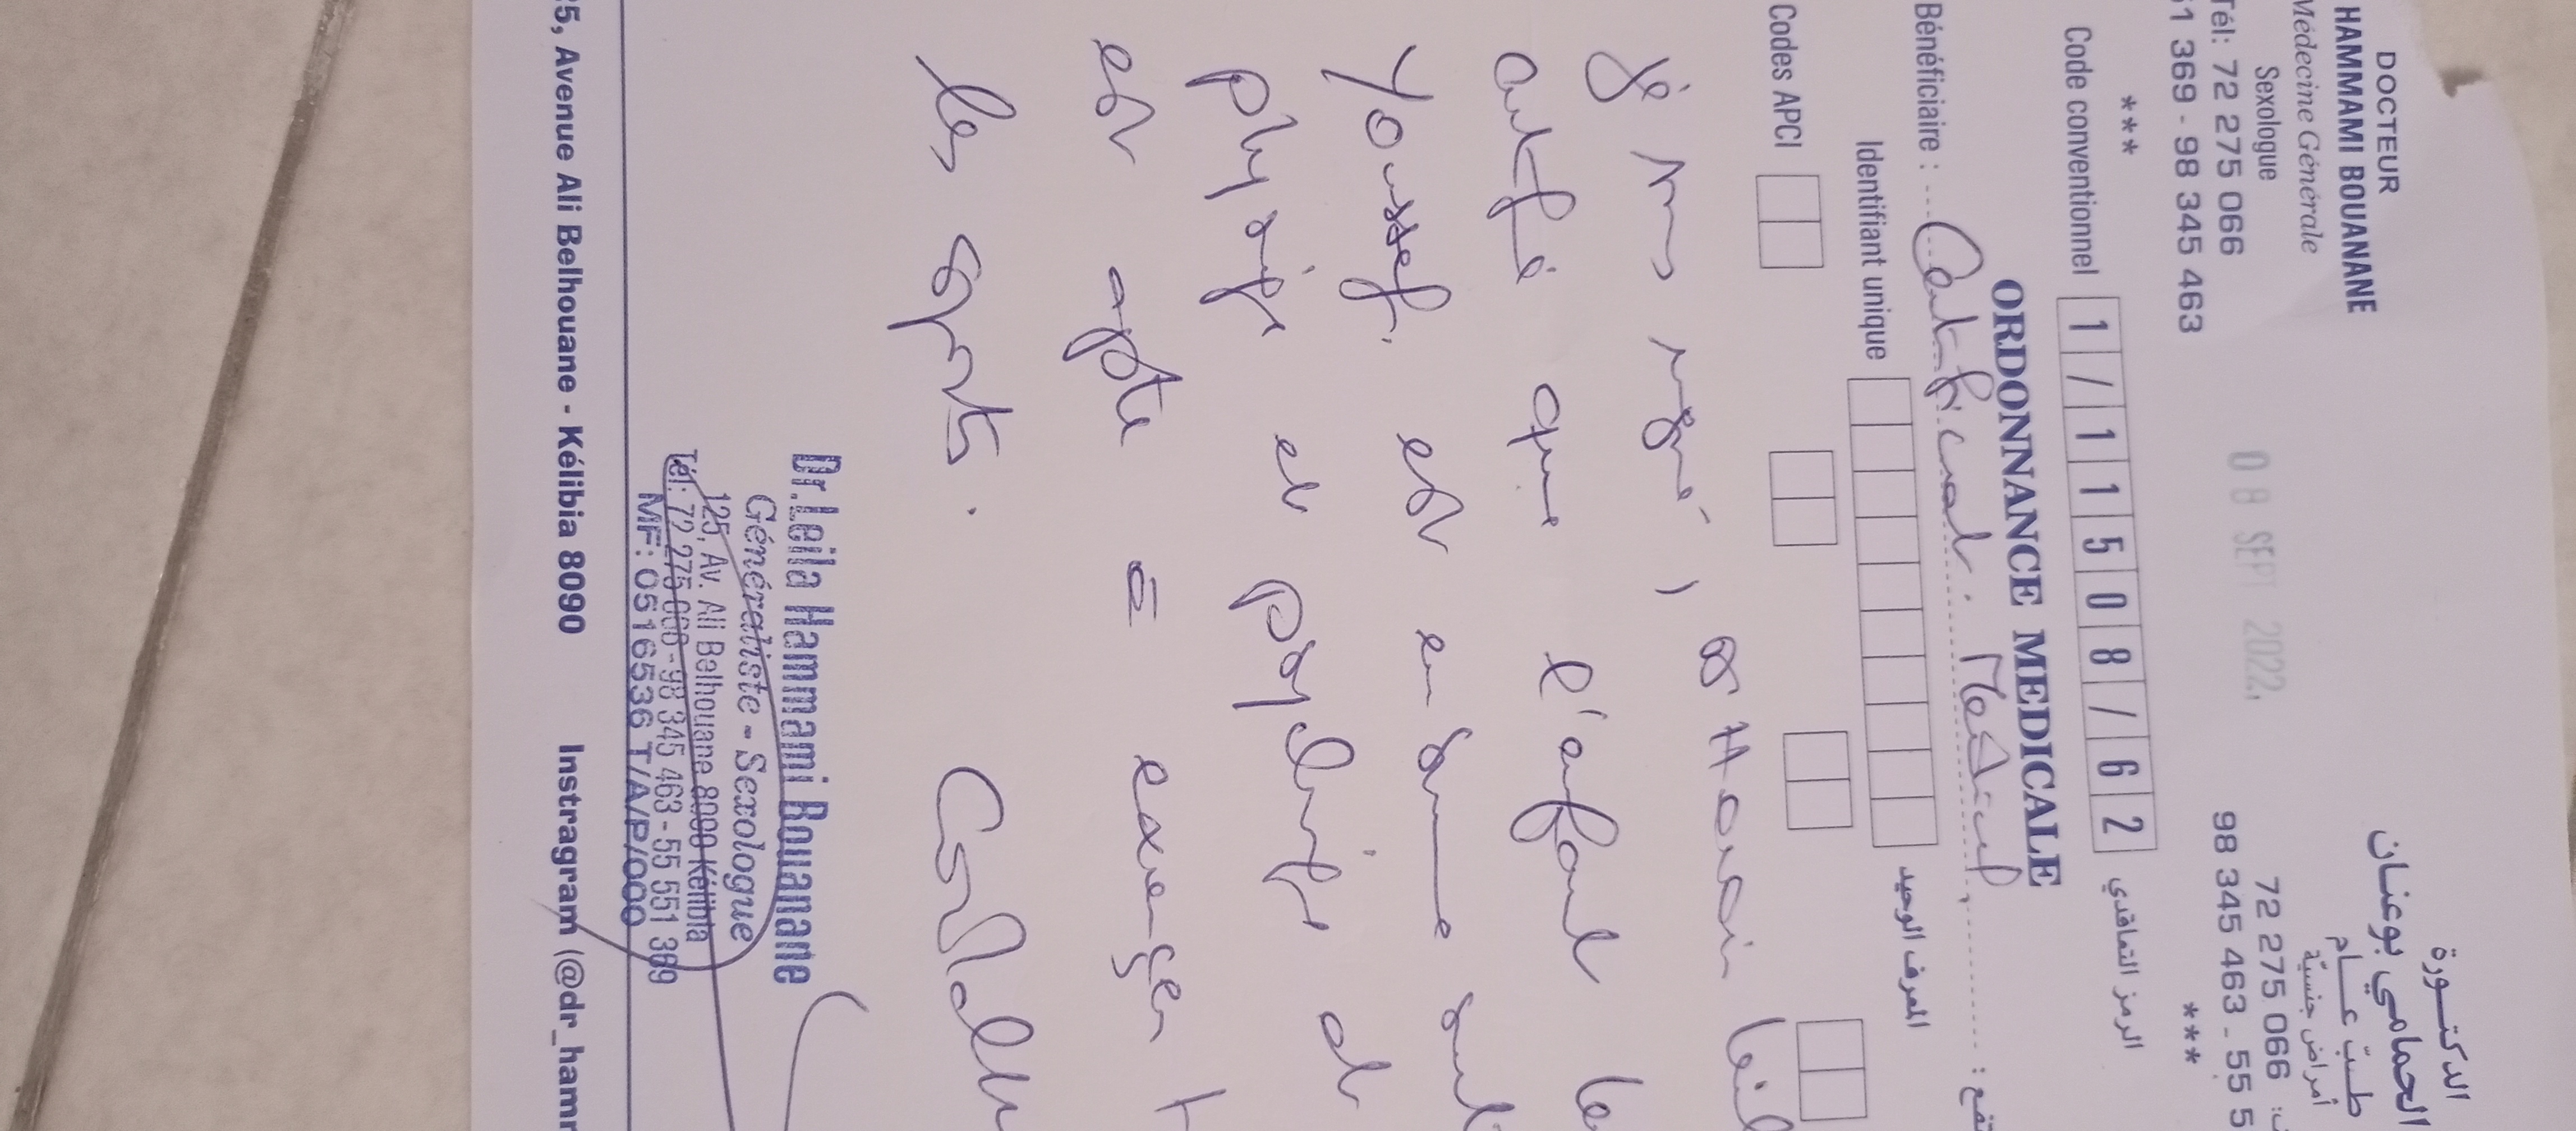 DOCTEUR
HAMMAMI BOUANANE
Médecine Générale
Sexologue
Tél: 72 275 066
51 369 - 98 345 463
***
الدكتورة
الحمامي بوعنان
طب عام
أمراض جنسية
72 275 066
98 345 463 - 55 5
***
08 SEPT 2022
Code conventionnel 1/115508/62 الرمز التعاقدي
ORDONNANCE MEDICALE
Bénéficiaire : Certificat Médical
Identifiant unique المعرف الوحيد
Codes APCI
Je
certifie que l'enfant
Youssef, est en bonne
physique et psychique et
est apte à exercer
les sports.
Dr. Leila Hammami Bouanane
Généraliste - Sexologue
125, Av. Ali Belhouane 8090 Kélibia
Tél: 72 275 066 - 98 345 463 - 55 551 369
MF: 0516536 T/A/P/000
25, Avenue Ali Belhouane - Kélibia 8090 Instragram (@dr_hamm